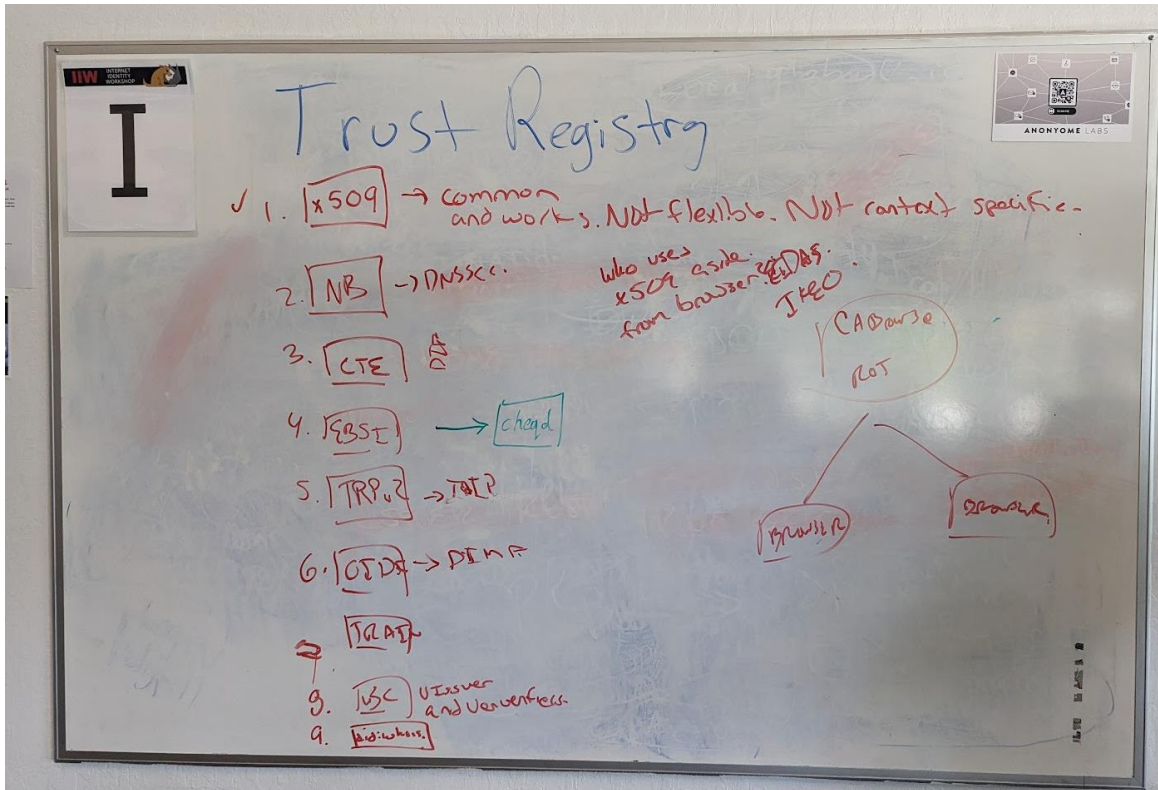 IIW INTERNET IDENTITY WORKSHOP
I
ANONYOME LABS
Trust Registry
✓ 1. x509 → common
and works. Not flexible. Not context specific.
who uses
x509 aside
from browser? eIDAS.
IKEO
2. NB → DNSSEC.
3. CTE
4. EBSI → cheqd
5. TRPv2 → TOIP
6. OIDF →
7. TRAIN
8. W3C
and
9. did:whois.
CABrowse
ROT
BROWSER
BROWSER